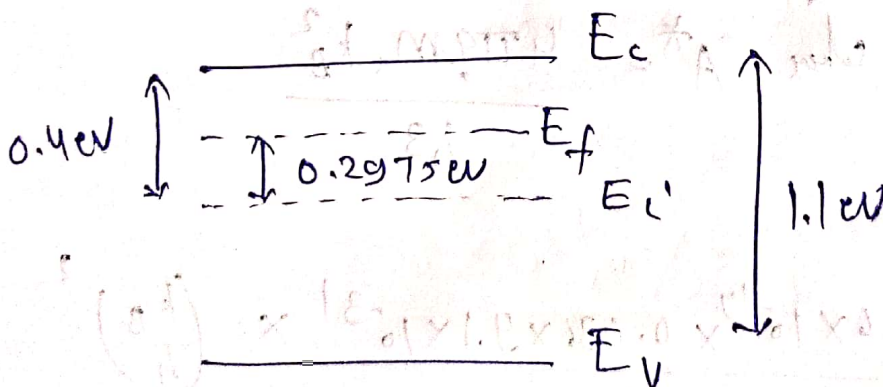 Ec
0.4 eV
Ef
0.2975 eV
Ei
1.1 eV
Ev